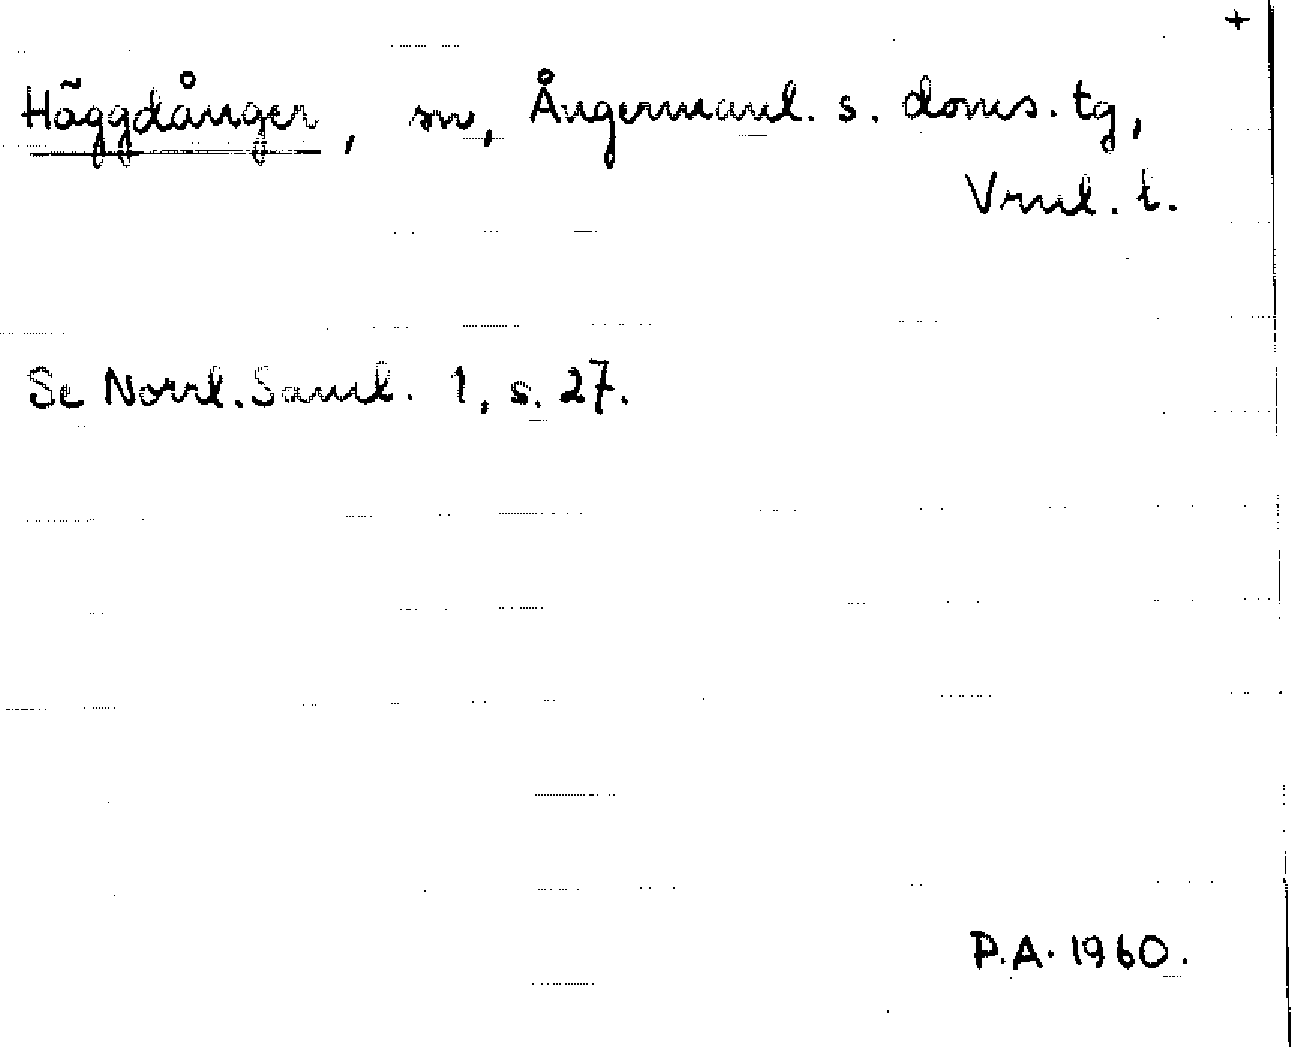 +
Häggdånger, sn, Ångermanl. s. doms. tg,
Vrnl. l.
Se Norrl. Saml. 1, s. 27.
P.A. 1960.